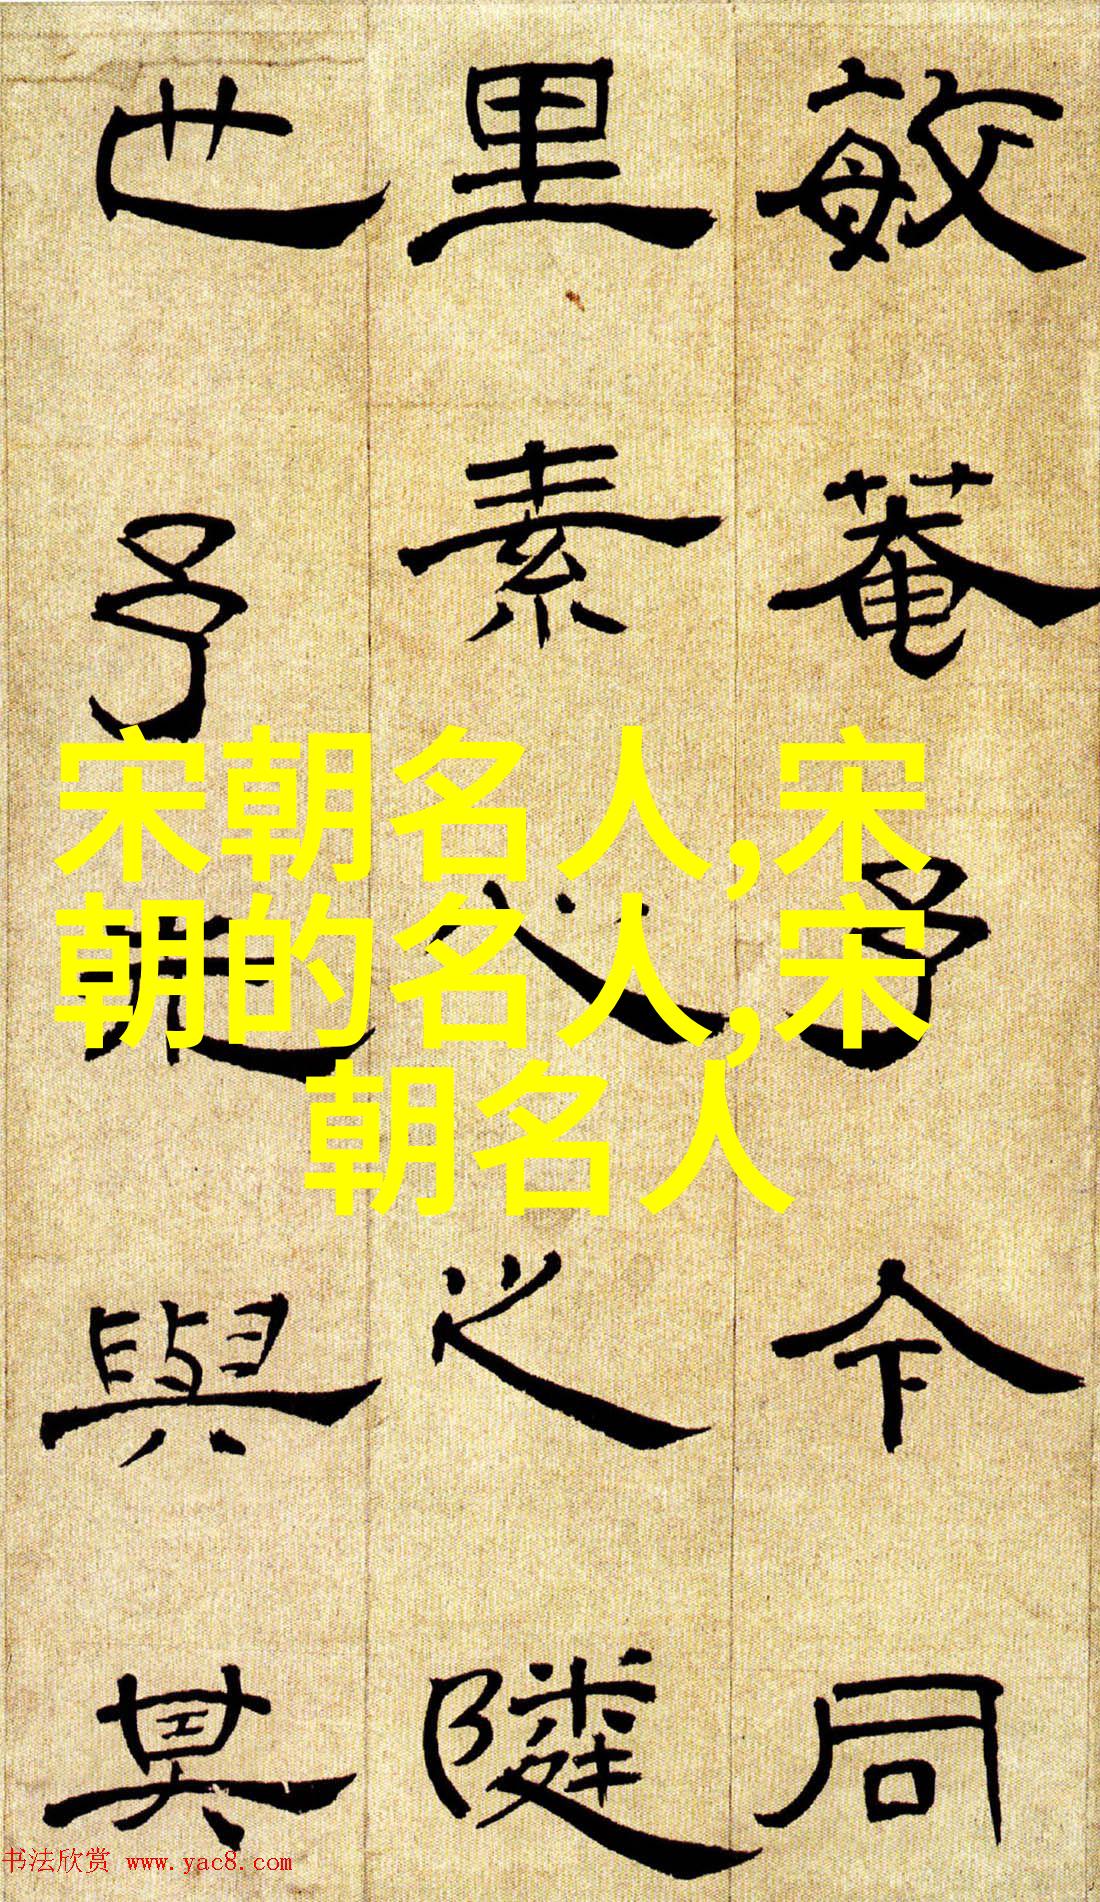 敏菴予今同
里素之
也予與其
宋朝名人,宋
朝的名人,宋
朝名人
书法欣赏 www.yac8.com